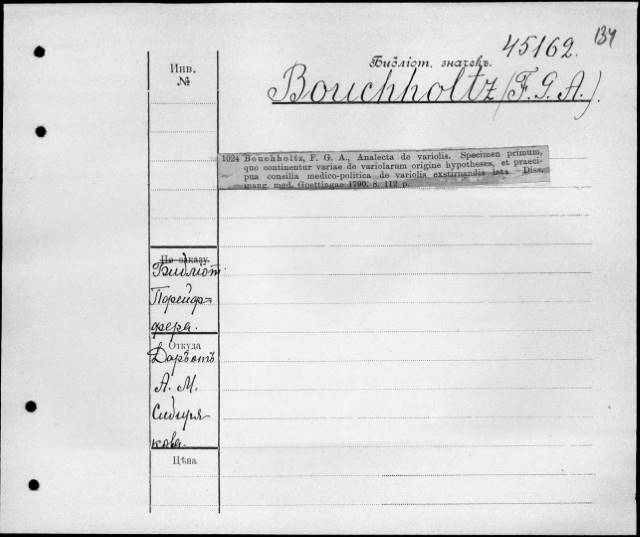 45162. 134
Библіот. значекъ.
Bouchholtz (F. G. A.).
Инв.
№
1024 Bouchholtz, F. G. A., Analecta de variolis. Specimen primum,
quo continentur variae de variolarum origine hypotheses, et praeci-
pua consilia medico-politica de variolis exstirpandis lata Diss.
inaug. med. Goettingae 1790. 8. 112 p.
По заказу.
Библіот.
Порейф-
фера.
Откуда
Даръ отъ
А. М.
Сибиря-
кова.
Цѣна